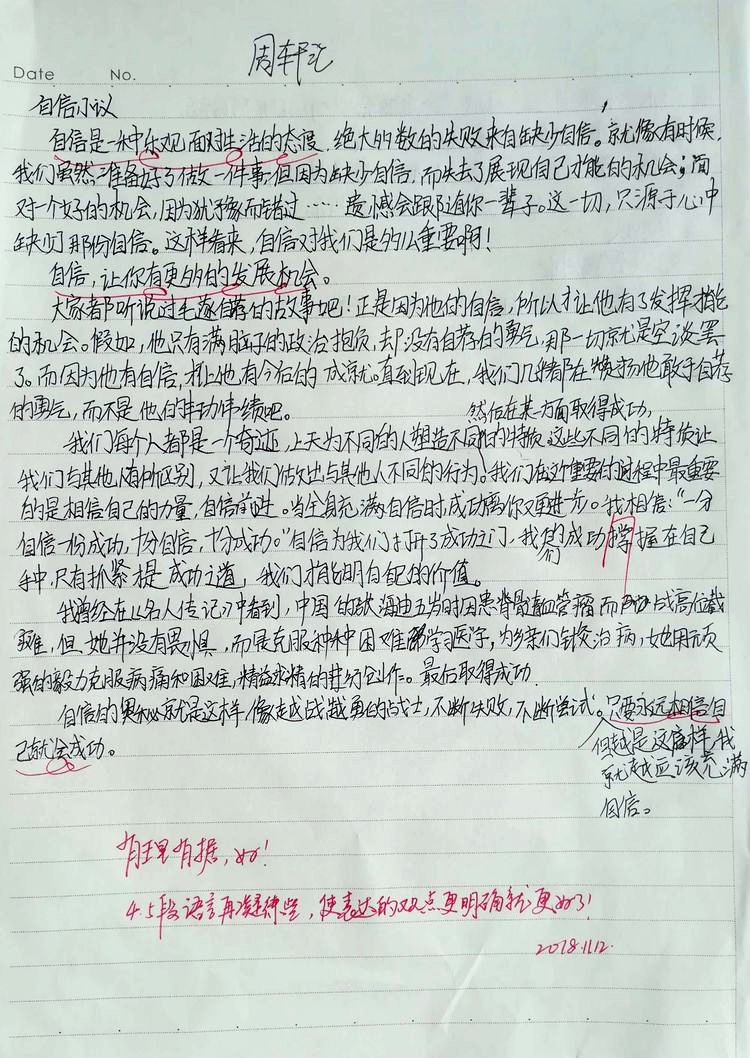 周轩
Date No.
自信小议
自信是一种乐观面对生活的态度，绝大多数的失败来自缺少自信。就像有时候，
我们虽然准备好了做一件事，但因为缺少自信，而失去了展现自己才能的机会；面
对一个好的机会，因为犹豫而错过……遗憾会跟随你一辈子。这一切，只源于心中
缺少那份自信。这样看来，自信对我们是多么重要啊！
自信，让你有更多的发展机会。
大家都听说过毛遂自荐的故事吧！正是因为他的自信，所以才让他有了发挥才能
的机会。假如，他只有满脑子的政治抱负，却没有自荐的勇气，那一切就是空谈罢
了。而因为他有自信，才让他有今后的成就。直到现在，我们几乎都在赞扬他敢于自荐
的勇气，而不是他的丰功伟绩吧。
然后在某一方面取得成功，
我们每个人都是一个奇迹，上天为不同的人塑造不同的特质，这些不同的特质让
我们与其他人有所区别，又让我们做出与其他人不同的行为。我们在这个重要的过程中最重要
的是相信自己的力量，自信前进。当全身充满自信时，成功离你又更进一步。我相信：“一分
自信一份成功，十分自信，十分成功。”自信为我们打开了成功之门，我们的成功掌握在自己
手中，只有抓紧才是成功之道，我们才能明白自己的价值。
我曾经在《名人传记》中看到，中国的张海迪五岁时因患脊髓血管瘤而成高位截
瘫，但她并没有畏惧，而是克服种种困难学习医学，为乡亲们针灸治病，她用顽
强的毅力克服病痛和困难，精益求精的进行创作。最后取得成功。
自信的奥秘就是这样，像越战越勇的战士，不断失败，不断尝试。只要永远相信自
己就会成功。
但越是这样，我
就越应该充满
自信。
有理有据，好！
4.5段语言再凝练些，使表达的观点更明确就更好了！
2018.11.12.